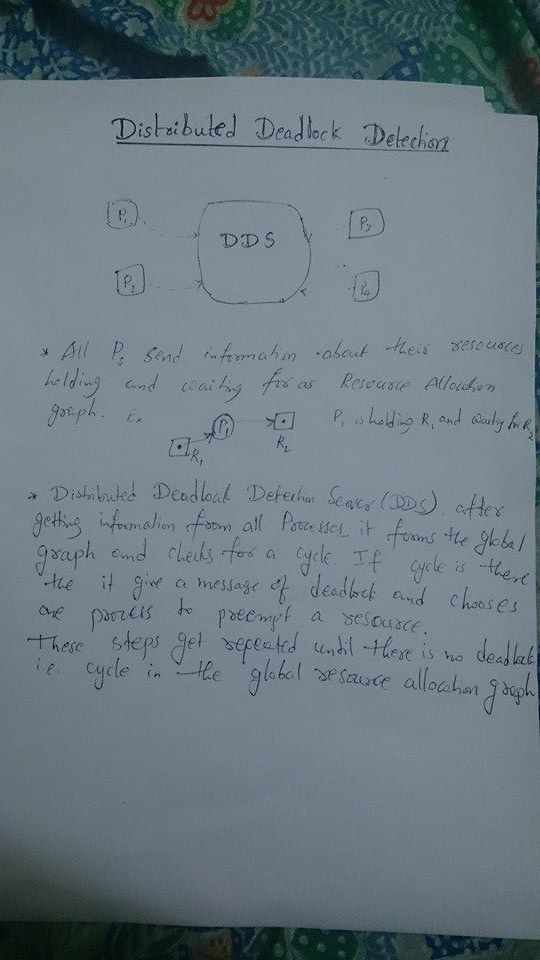 Distributed Deadlock Detection
P1
DDS
P3
P2
P4
* All Ps send information about their resources
holding and waiting for as Resource Allocation
graph. Ex P1 P1 is holding R1 and waiting for R2
R1 R2
* Distributed Deadloak Detection Server (DDS), after
getting information from all Processes it forms the global
graph and checks for a cycle. If cycle is there
the it give a message of deadlock and chooses
one process to preempt a resource.
These steps get repeated until there is no deadlock
i.e. cycle in the global resource allocation graph